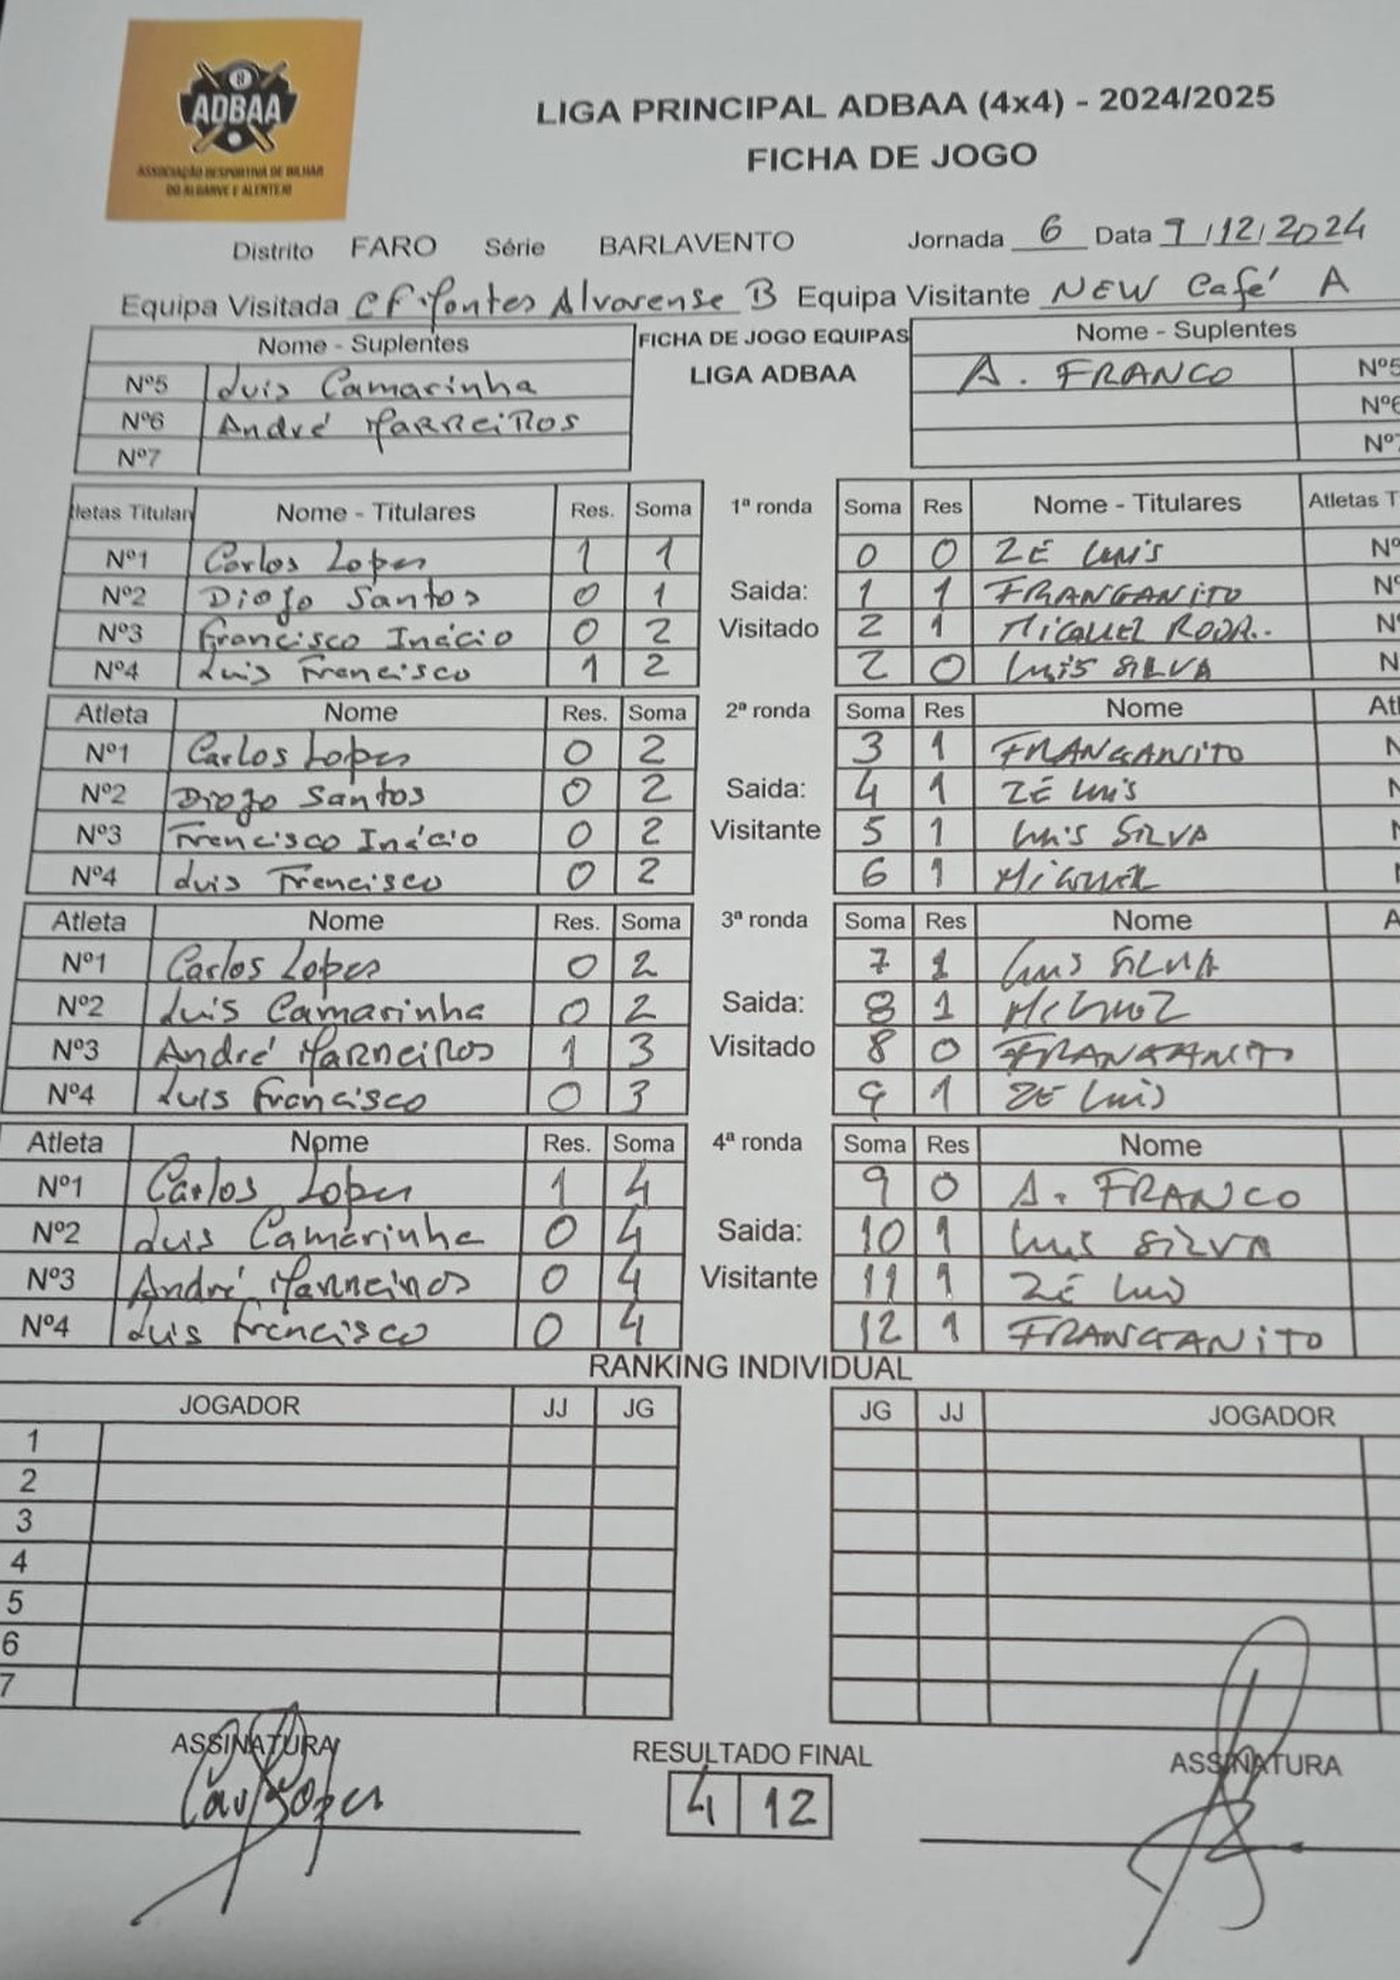 8
ADBAA
ASSOCIAÇÃO DESPORTIVA DE BILHAR
DO ALGARVE E ALENTEJO
LIGA PRINCIPAL ADBAA (4x4) - 2024/2025
FICHA DE JOGO
Distrito FARO Série BARLAVENTO Jornada 6 Data 7/12/2024
Equipa Visitada CF Fontes Alvorense B Equipa Visitante NEW Café A
Nome - Suplentes FICHA DE JOGO EQUIPAS Nome - Suplentes
Nº5 Luis Camarinha LIGA ADBAA A. FRANCO Nº5
Nº6 André Marreiros Nº6
Nº7 Nº7
letas Titular Nome - Titulares Res. Soma 1ª ronda Soma Res Nome - Titulares Atletas T
Nº1 Carlos Lopes 1 1 0 0 ZÉ LUIS Nº
Nº2 Diogo Santos 0 1 Saida: 1 1 FRANGANITO Nº
Nº3 Francisco Inácio 0 2 Visitado 2 1 MIGUEL RODR.. Nº
Nº4 Luis Francisco 1 2 2 0 LUIS SILVA N
Atleta Nome Res. Soma 2ª ronda Soma Res Nome Atl
Nº1 Carlos Lopes 0 2 3 1 FRANGANITO N
Nº2 Diogo Santos 0 2 Saida: 4 1 ZÉ LUIS N
Nº3 Francisco Inácio 0 2 Visitante 5 1 LUIS SILVA N
Nº4 Luis Francisco 0 2 6 1 MIGUEL
Atleta Nome Res. Soma 3ª ronda Soma Res Nome A
Nº1 Carlos Lopes 0 2 7 1 LUIS SILVA
Nº2 Luis Camarinha 0 2 Saida: 8 1 MIGUEL
Nº3 André Marreiros 1 3 Visitado 8 0 FRANGANITO
Nº4 Luis Francisco 0 3 9 1 ZÉ LUIS
Atleta Nome Res. Soma 4ª ronda Soma Res Nome
Nº1 Carlos Lopes 1 4 9 0 A. FRANCO
Nº2 Luis Camarinha 0 4 Saida: 10 1 LUIS SILVA
Nº3 André Marreiros 0 4 Visitante 11 1 ZÉ LUIS
Nº4 Luis Francisco 0 4 12 1 FRANGANITO
RANKING INDIVIDUAL
JOGADOR JJ JG JG JJ JOGADOR
1
2
3
4
5
6
7
ASSINATURA RESULTADO FINAL ASSINATURA
Carlos Lopes 4 12